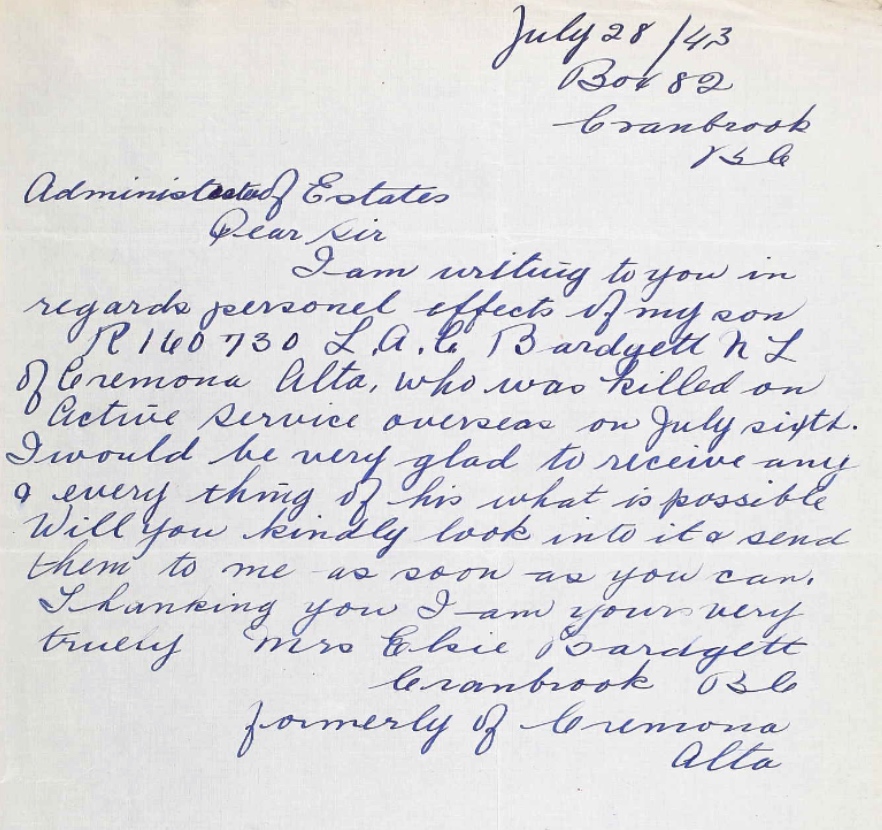 July 28/43
Box 82
Cranbrook
BC
Administrator of Estates
Dear Sir
I am writing to you in
regards personel effects of my son
R160730 L.A.C. Bardgett N L
of Cremona Alta, who was killed on
Active Service overseas on July sixth.
I would be very glad to receive any
& every thing of his what is possible
Will you kindly look into it & send
them to me as soon as you can.
Thanking you I am yours very
truely Mrs Elsie Bardgett
Cranbrook BC
formerly of Cremona
Alta